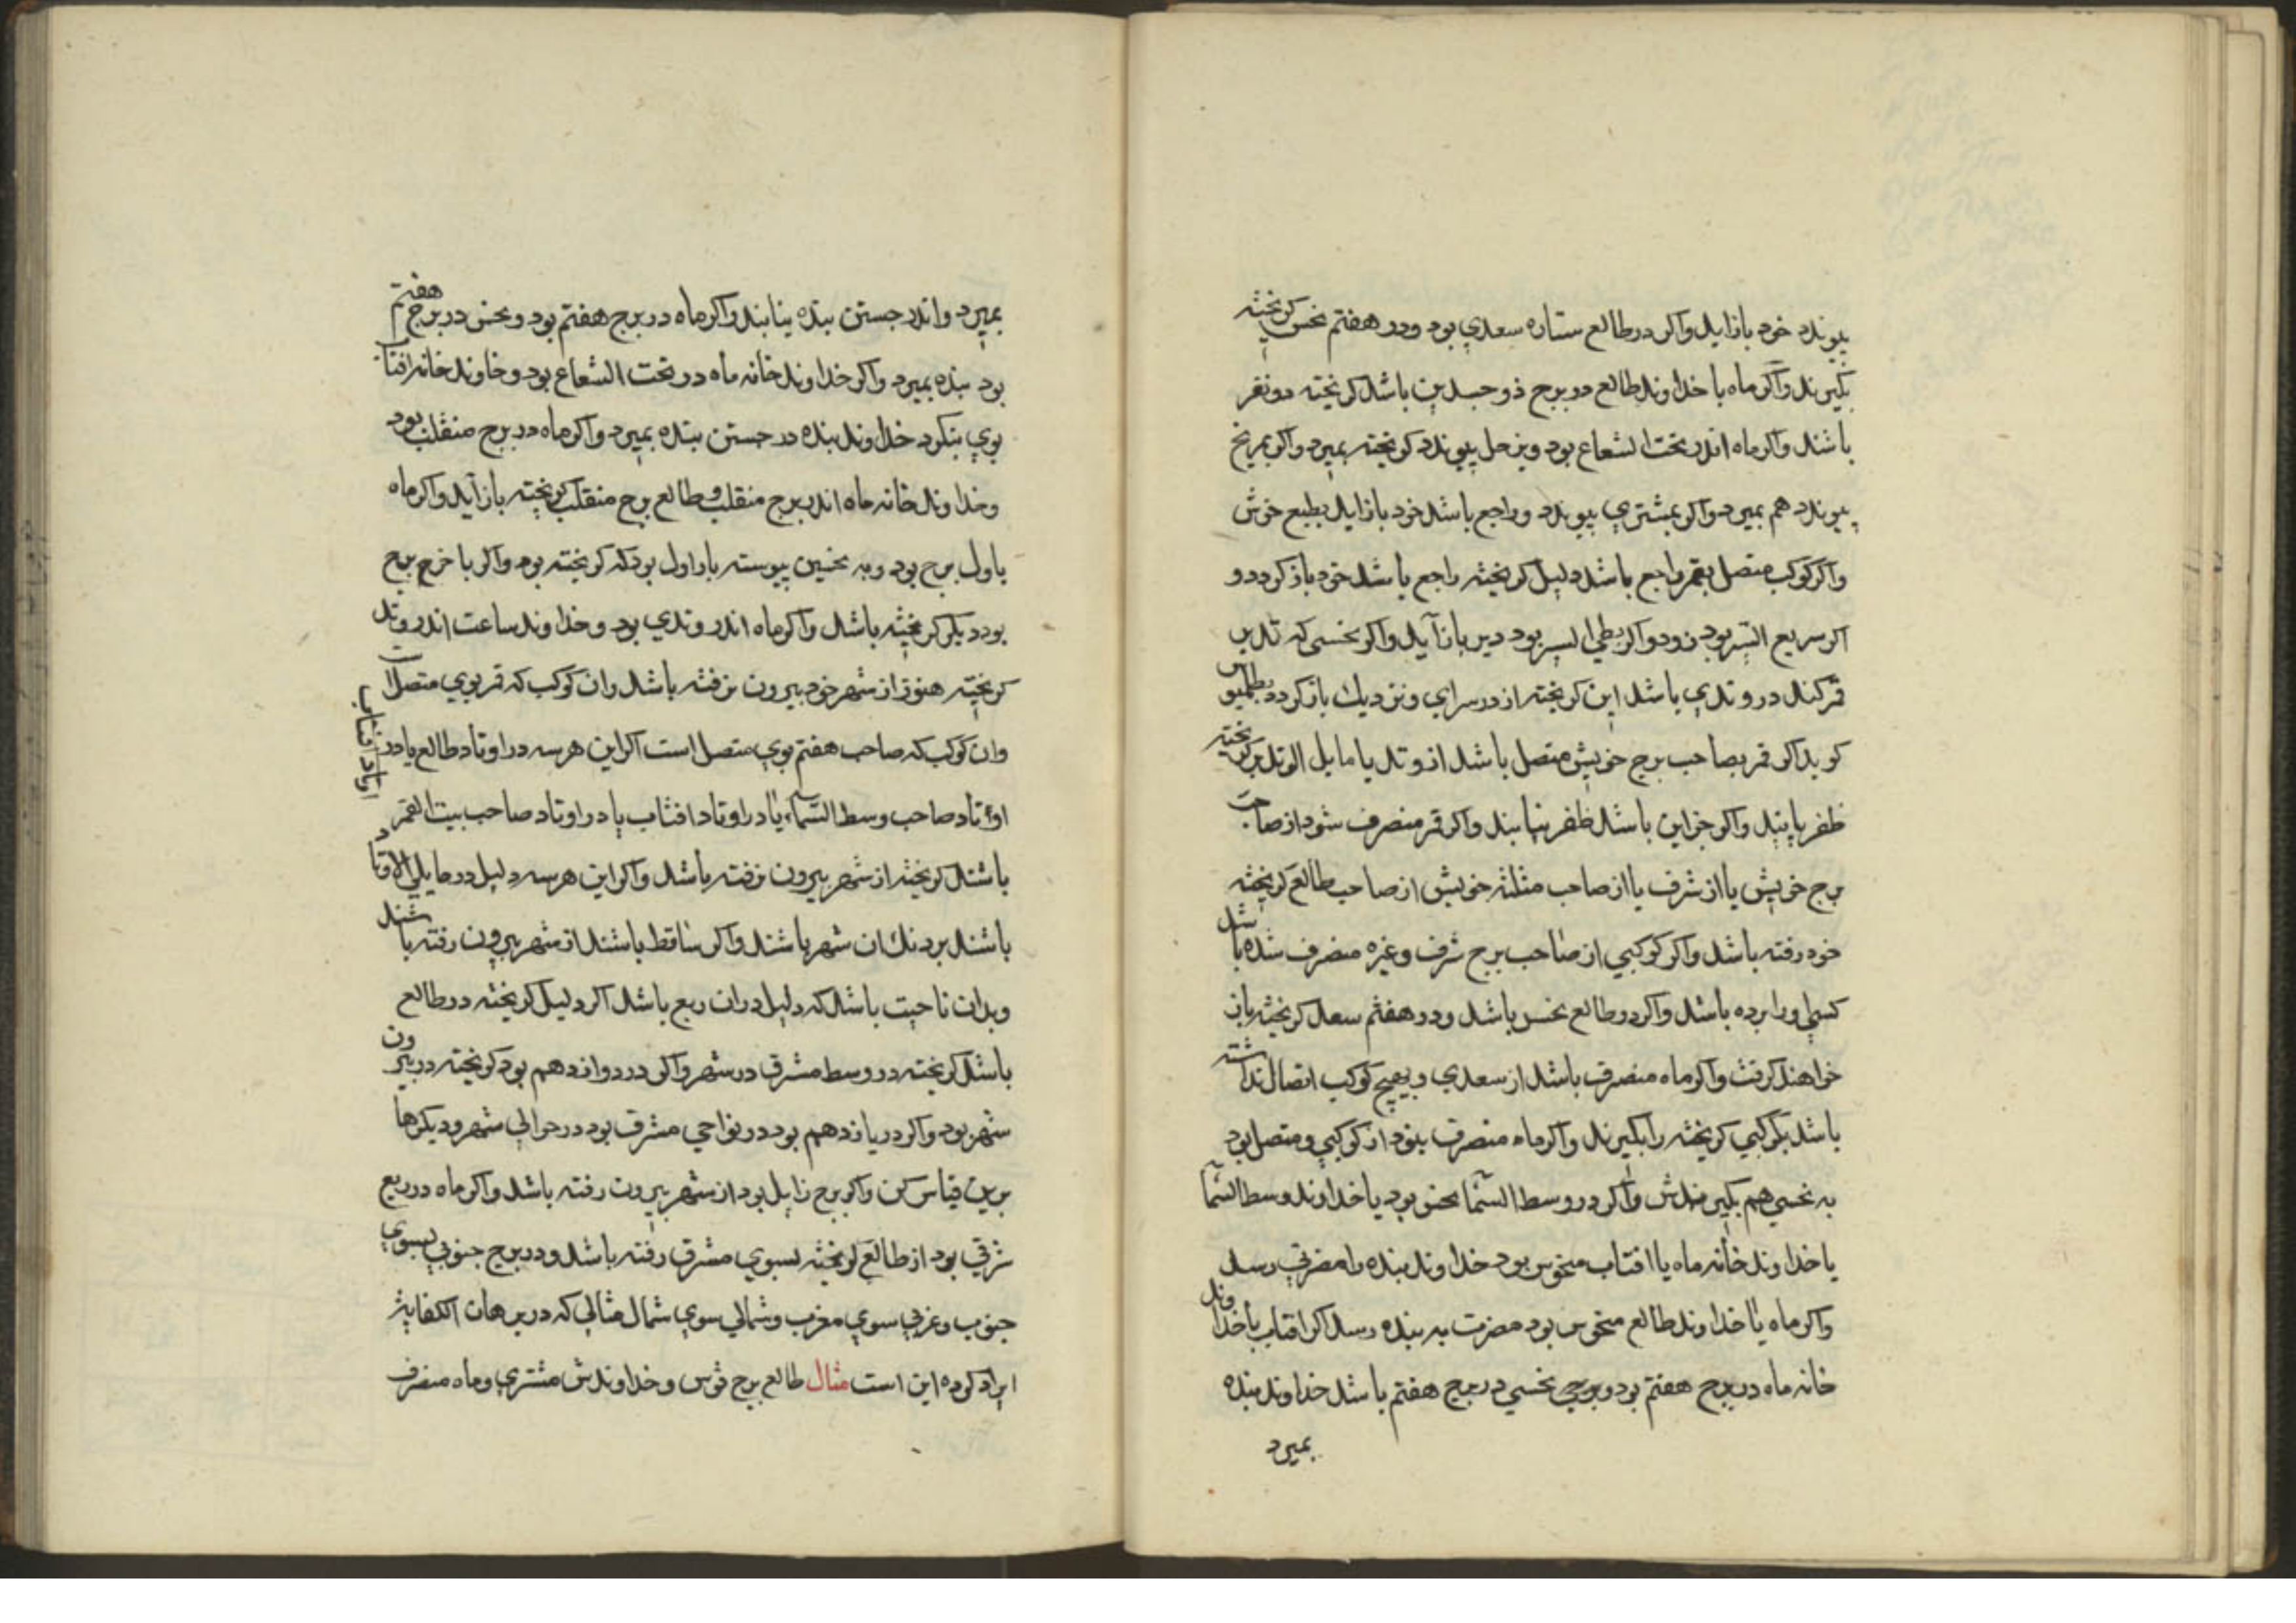 پیوندد خود بازاید واکر درطالع ستاره سعدی بود ودر هفتم نحس کریخته
بکیرند واکر ماه با خداوند طالع در برج ذوجسدین باشد کریخته دو نفر
باشند واکر ماه اندر تحت الشعاع بود وبزحل پیوندد کریخته بمیرد واکر بمریخ
پیوندد هم بمیرد واکر بمشتری پیوندد وراجع باشد خود بازاید بطبع خوش
واکر کوکب متصل بقمر راجع باشد دلیل کریخته راجع باشد خود باز کردد و
اکر سریع السیر بود زود واکر بطی السیر بود دیر بازآید واکر نحسی که تدبیر
قمر کند در وتدی باشد این کریخته از در سرای ونزدیك باز کردد بطلمیوس
کوید اکر قمر بصاحب برج خویش متصل باشد از وتد یا مایل الوتد بر کریخته
ظفر یابند واکر جز این باشد ظفر نیابند واکر قمر منصرف شود از صاحب
برج خویش یا از شرف یا از صاحب مثلثه خویش از صاحب طالع کریخته
خود رفته باشد واکر کوکبی از صاحب برج شرف وغیره منصرف شده باشد
کسی اورا برده باشد واکر در طالع نحس باشد ودر هفتم سعد کریخته باز
خواهند کرفت واکر ماه منصرف باشد از سعدی وبهیچ کوکب اتصال نداشته
باشد بکوکبی کریخته را بکیرند واکر ماه منصرف بود از کوکبی ومتصل بود
به نحسی هم بکیرندش واکر در وسط السما نحس بود یا خداوند وسط السما
یا خداوند خانه ماه یا افتاب منحوس بود خداوند بنده را مضرتی رسد
واکر ماه یا خداوند طالع منحوس بود مضرت به بنده رسد اکر افتاب یا خداوند
خانه ماه در برج هفتم بود وبرج نحسی در برج هفتم باشد خداوند بنده
بمیرد
بمیرد واندر جستن بنده نیابند واکر ماه در برج هفتم بود ونحس در برج هفتم
بود بنده بمیرد واکر خداوند خانه ماه در تحت الشعاع بود وخاوند خانه افتاب
بوی بنکرد خداوند بنده در جستن بنده بمیرد واکر ماه در برج منقلب بود
وخداوند خانه ماه اندر برج منقلب وطالع برج منقلب کریخته بازآید واکر ماه
باول برج بود وبه نحسین پیوسته بار اول بود که کریخته بود واکر باخر برج
بود دیکر کریخته باشد واکر ماه اندر وتدی بود وخداوند ساعت اندر وتد
کریخته هنوز از شهر خود بیرون نرفته باشد وان کوکب که قمر بوی متصل است
وان کوکب که صاحب هفتم بوی متصل است اکر این هر سه در اوتاد طالع یا در
اوتاد صاحب وسط السماء یا در اوتاد افتاب یا در اوتاد صاحب بیت القمر
اوتاد افتاب
باشند کریخته از شهر بیرون نرفته باشد واکر این هر سه دلیل در مایلی الاوتاد
باشند بردنك ان شهر باشند واکر ساقط باشند از شهر بیرون رفته باشند
وبدان ناحیت باشد که دلیل دران ربع باشد اکر دلیل کریخته در طالع
باشد کریخته در وسط مشرق در شهر واکر در دوازدهم بود کریخته در بیرون
شهر بود واکر در یازدهم بود در نواحی مشرق بود در حوالی شهر ودیکرها
برین قیاس کن واکر برج زایل بود از شهر بیرون رفته باشد واکر ماه در ربع
شرقی بود از طالع کریخته بسوی مشرق رفته باشد ودر برج جنوبی بسوی
جنوب وغربی سوی مغرب وشمالی سوی شمال مثالی که در برهان الکفایة
ایراد کرده این است مثال طالع برج قوس وخداوندش مشتری وماه منصرف